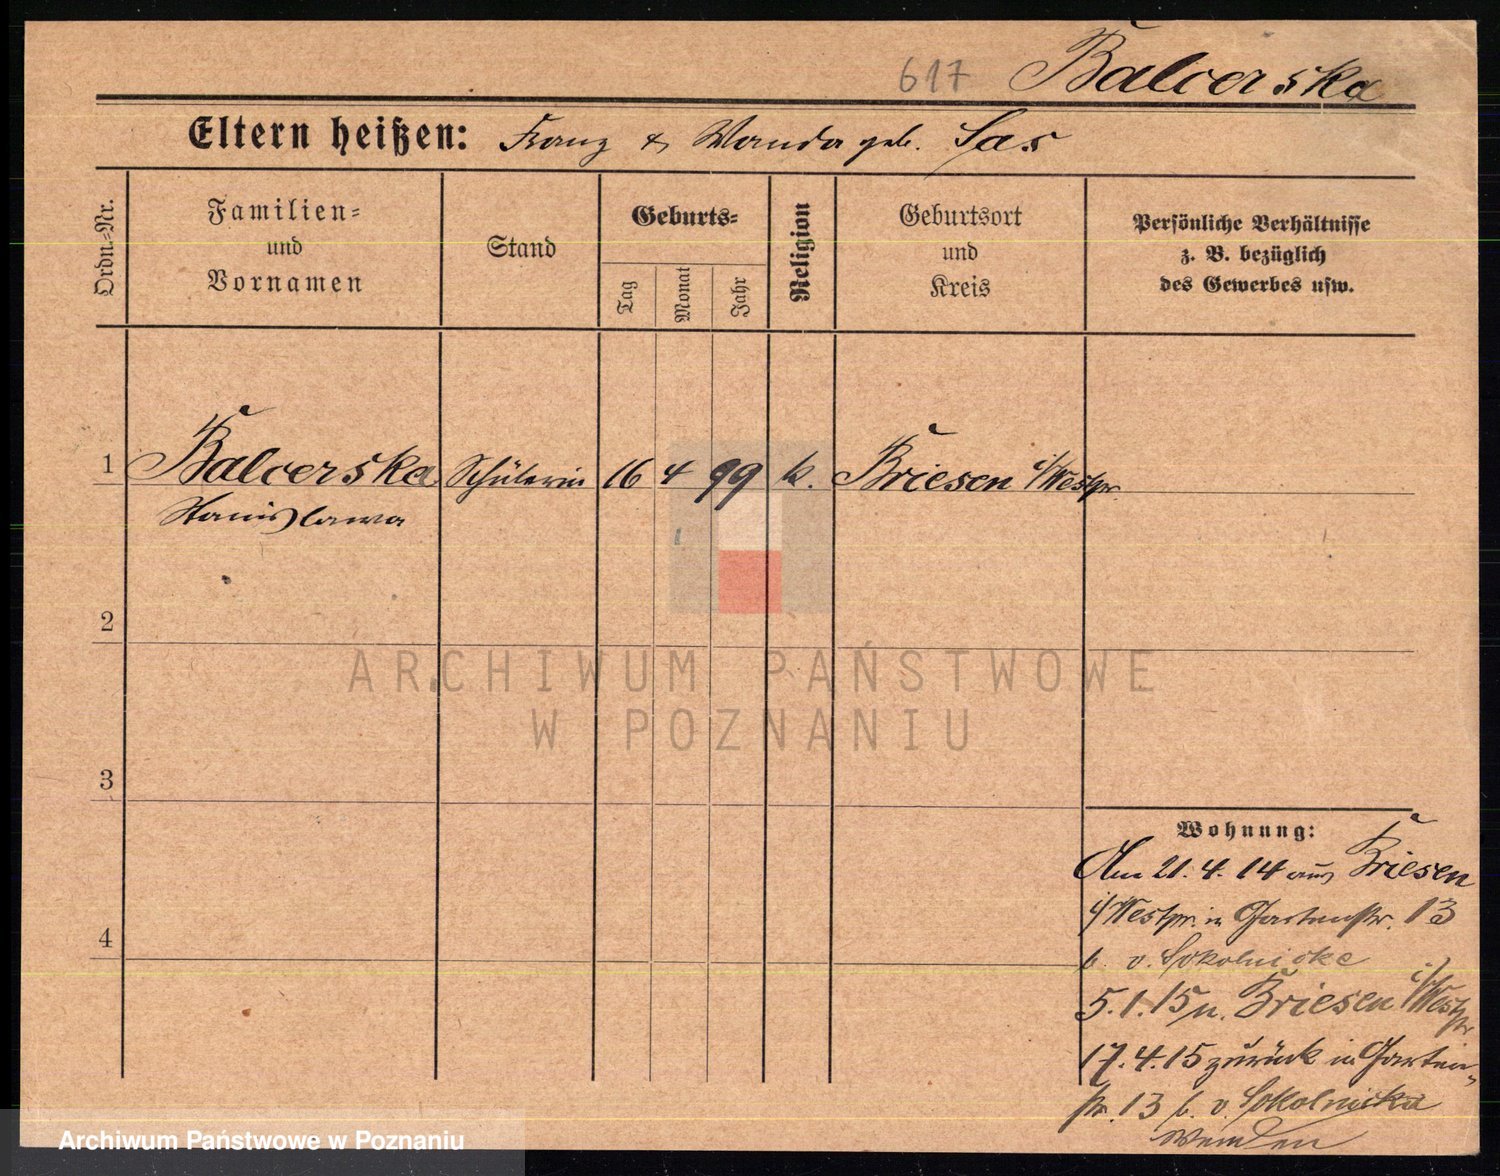 617 Balcerska
Eltern heißen: Franz & Wanda geb. Sas
Ordn.-Nr.
Familien-
und
Vornamen
Stand
Geburts-
Tag
Monat
Jahr
Religion
Geburtsort
und
Kreis
Persönliche Verhältnisse
z. B. bezüglich
des Gewerbes usw.
1 Balcerska Schülerin 16 4 99 k. Briesen i/Westpr.
Stanislawa
2
ARCHIWUM PAŃSTWOWE
W POZNANIU
3
4
Wohnung:
Am 21. 4. 14 aus Briesen
i/Westpr. in Gartenstr. 13
b. v. Sokolnicka
5. 1. 15 n. Briesen i/Westpr
17. 4. 15 zurück in Garten-
str. 13 b. v. Sokolnicka
Archiwum Państwowe w Poznaniu